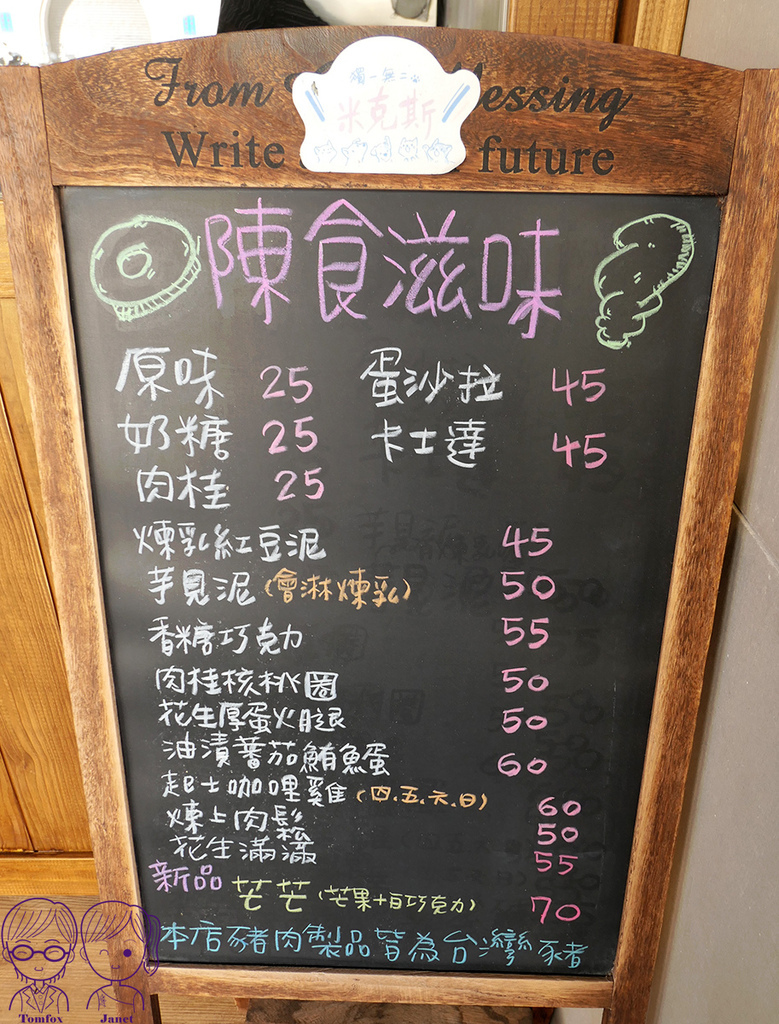 From lessing
獨一無二の
米克斯
Write future
陳食滋味
原味 25 蛋沙拉 45
奶糖 25 卡士達 45
肉桂 25
煉乳紅豆泥 45
芋見泥(會淋煉乳) 50
香糖巧克力 55
肉桂核桃圈 50
花生厚蛋火腿 50
油漬蕃茄鮪魚蛋 60
起士咖哩雞(四.五.六.日) 60
煉上肉鬆 50
花生滿滿 55
新品 芒芒(芒果+白巧克力) 70
本店豬肉製品皆為台灣豬
Tomfox Janet